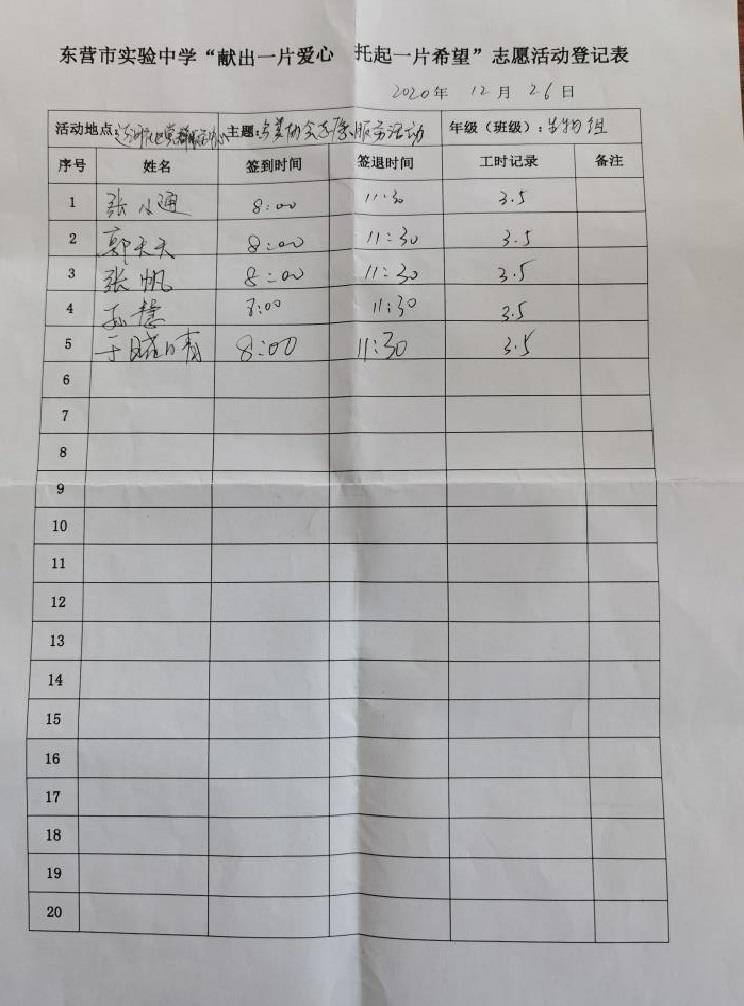 东营市实验中学“献出一片爱心 托起一片希望”志愿活动登记表
2020年 12月 26日
活动地点: 主题: 志愿服务活动 年级（班级）: 生物组
序号 姓名 签到时间 签退时间 工时记录 备注
1 张小通 8:00 11:30 3.5
2 郭天天 8:00 11:30 3.5
3 张帆 8:00 11:30 3.5
4 孙慧 8:00 11:30 3.5
5 于晓晴 8:00 11:30 3.5
6
7
8
9
10
11
12
13
14
15
16
17
18
19
20